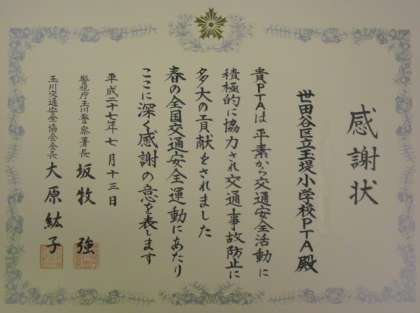 感謝状
世田谷区立玉堤小学校PTA殿
貴PTAは平素から交通安全活動に
積極的に協力され交通事故防止に
多大の貢献をされました
春の全国交通安全運動にあたり
ここに深く感謝の意を表します
平成二十七年七月十三日
警視庁玉川警察署長 坂牧 強
玉川交通安全協会会長 大原 紘子